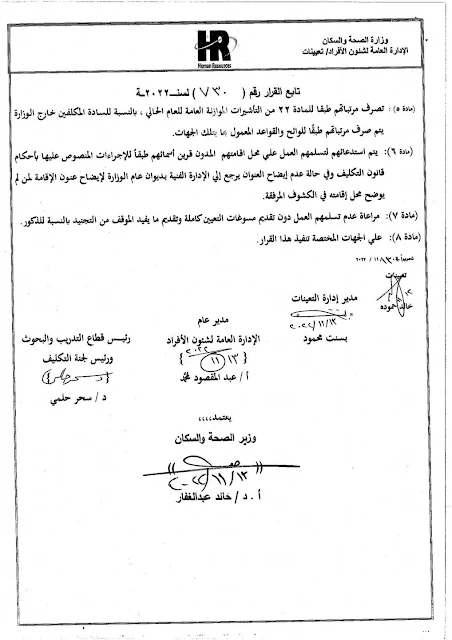 وزارة الصحة والسكان
الإدارة العامة لشئون الأفراد/ تعيينات
HR
HUMAN RESOURCES
تابع القرار رقم ( ٧٣٠ ) لسنـــ٢٠٢٢ــة
(مادة ٥) : تصرف مرتباتهم طبقا للمادة ٢٢ من التأشيرات الموازنة العامة للعام الحالي ، بالنسبة للسادة المكلفين خارج الوزارة
يتم صرف مرتباتهم طبقًا للوائح والقواعد المعمول بها بتلك الجهات.
(مادة ٦): يتم استدعائهم لتسلمهم العمل علي محل اقامتهم المدون قرين أسمائهم طبقاً للإجراءات المنصوص عليها بأحكام
قانون التكليف وفي حالة عدم إيضاح العنوان يرجع إلي الإدارة الفنية بديوان عام الوزارة لإيضاح عنون الإقامة لمن لم
يوضح محل إقامته في الكشوف المرفقة.
(مادة ٧): مراعاة عدم تسلمهم العمل دون تقديم مسوغات التعيين كاملة وتقديم ما يفيد الموقف من التجنيد بالنسبة للذكور.
(مادة ٨): علي الجهات المختصة تنفيذ هذا القرار.
تحريراً في ١٣/ ١١/ ٢٠٢٢
تعيينات
خالد حموده
مدير إدارة التعينات
٢٠٢٢/١١/١٣
بسنت محمود
مدير عام
الإدارة العامة لشئون الأفراد
٢٠٢٢
١١/١٣
أ/ عبد المقصود محمد
رئيس قطاع التدريب والبحوث
ورئيس لجنة التكليف
د/ سحر حلمي
يعتمد،،،،
وزير الصحة والسكان
٢٠٢٢/١١/١٣
أ . د/ خالد عبدالغفار